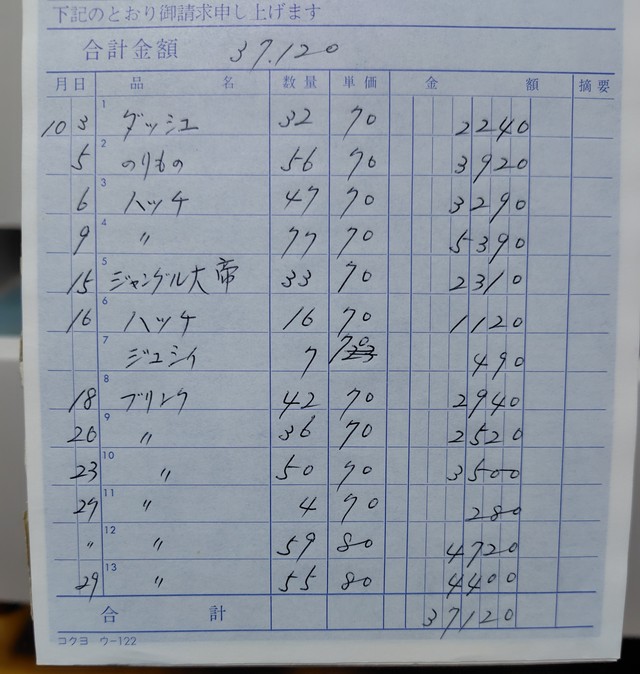 下記のとおり御請求申し上げます
合計金額 37.120
月日 品名 数量 単価 金額 摘要
10 3 1 ダッシュ 32 70 2240
5 2 のりもの 56 70 3920
6 3 ハッチ 47 70 3290
9 4 〃 77 70 5390
15 5 ジャングル大帝 33 70 2310
16 6 ハッチ 16 70 1120
7 ジュシィ 7 70 490
18 8 ブリンク 42 70 2940
20 9 〃 36 70 2520
23 10 〃 50 70 3500
27 11 〃 4 70 280
〃 12 〃 59 80 4720
29 13 〃 55 80 4400
合計 37120
コクヨ ウ-122